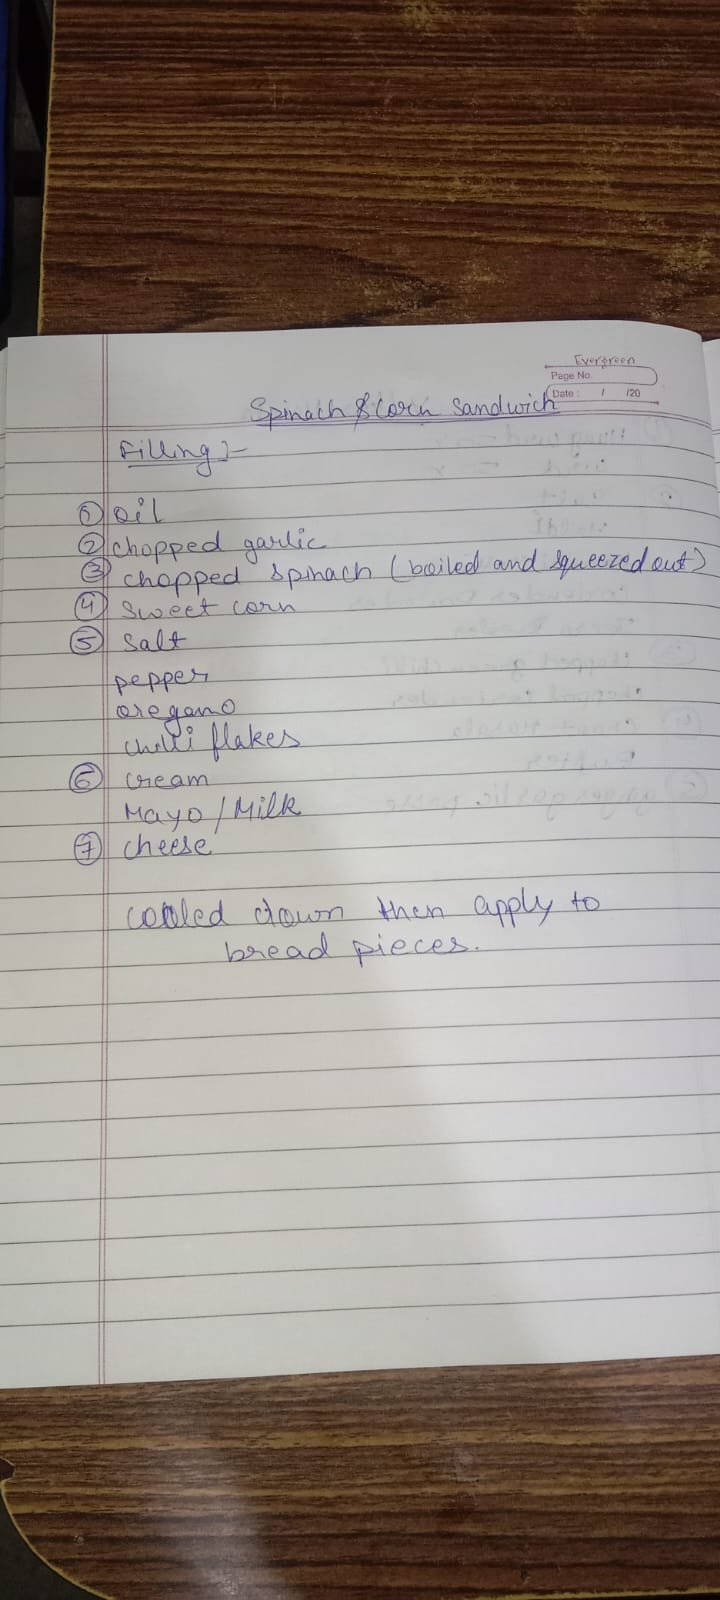 Evergreen
Page No.
Date : / /20
Spinach & Corn Sandwich
Filling :-
① oil
② chopped garlic
③ chopped spinach (boiled and squeezed out)
④ sweet corn
⑤ salt
pepper
oregano
chilli flakes
⑥ cream
Mayo/Milk
⑦ cheese
cooled down then apply to
bread pieces.